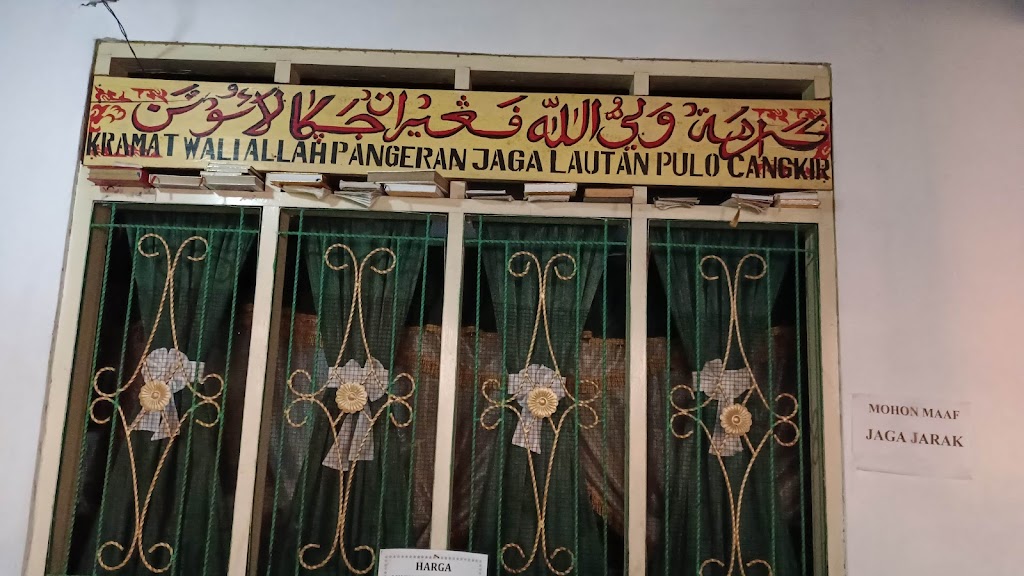 كرامة ولي الله فڠيران جاكا لاؤتن
KRAMAT WALI ALLAH PANGERAN JAGA LAUTAN PULO CANGKIR
MOHON MAAF
JAGA JARAK
HARGA